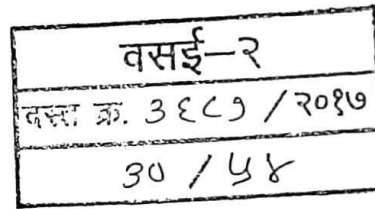 वसई–२
दस्त क्र. ३६८७ / २०१७
३० / ५४